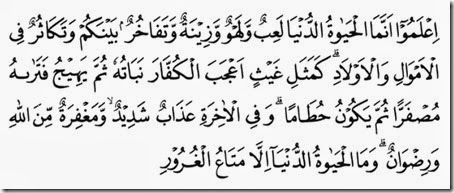 اِعْلَمُوْٓا اَنَّمَا الْحَيٰوةُ الدُّنْيَا لَعِبٌ وَّلَهْوٌ وَّزِيْنَةٌ وَّتَفَاخُرٌۢ بَيْنَكُمْ وَتَكَاثُرٌ فِى
الْاَمْوَالِ وَالْاَوْلَادِۗ كَمَثَلِ غَيْثٍ اَعْجَبَ الْكُفَّارَ نَبَاتُهٗ ثُمَّ يَهِيْجُ فَتَرٰىهُ
مُصْفَرًّا ثُمَّ يَكُوْنُ حُطَامًاۗ وَفِى الْاٰخِرَةِ عَذَابٌ شَدِيْدٌۙ وَّمَغْفِرَةٌ مِّنَ اللهِ
وَرِضْوَانٌۗ وَمَا الْحَيٰوةُ الدُّنْيَآ اِلَّا مَتَاعُ الْغُرُوْرِ